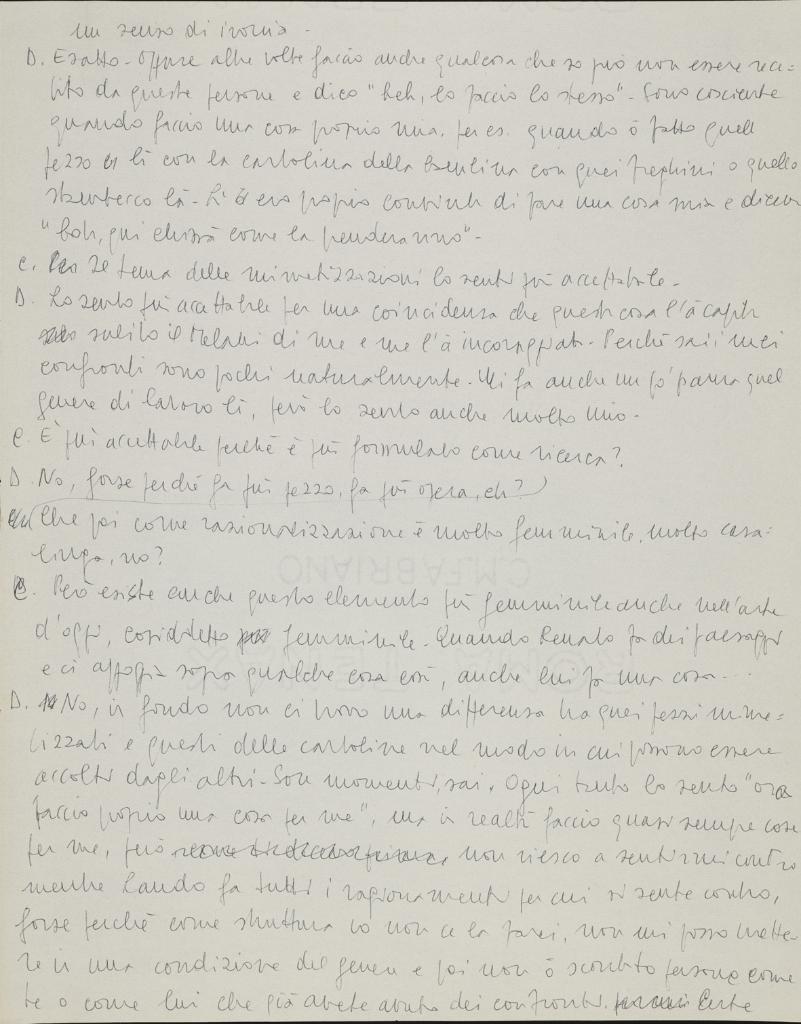 un senso di ironia -
D. Esatto - Oppure alle volte faccio anche qualcosa che so può non essere rece=
pito da queste persone e dico "beh, lo faccio lo stesso" - Sono cosciente
quando faccio una cosa proprio mia. per es. quando ò fatto quell
pezzo lì con la cartolina della bambina con quei freghini o quello
là - Lì ero proprio contenta di fare una cosa mia e dicevo
"boh, qui chissà come la prenderanno" -
C. Il tema delle mimetizzazioni lo senti più accettabile -
D. Lo sento più accettabile per una coincidenza che questa cosa l'à capita
subito il di me e me l'à incoraggiata - Perché sai i miei
confronti sono pochi naturalmente - Mi fa anche un po' paura quel
genere di lavoro lì, però lo sento anche molto mio -
C. È più accettabile perché è più formulato come ricerca?
D. No, forse perché fa più pezzo, fa più opera, eh?
Che poi come razionalizzazione è molto femminile, molto casa=
linga, no?
C. Però esiste anche questo elemento più femminile anche nell'arte
d'oggi, cosiddetto femminile - Quando Renato fa dei paesaggi
e ci appoggia sopra qualche cosa così, anche lui fa una cosa ...
D. No, in fondo non ci trovo una differenza tra quei pezzi mime=
tizzati e questi delle cartoline nel modo in cui possono essere
accolti dagli altri - Son momenti, sai. Ogni tanto lo sento "ora
faccio proprio una cosa per me", ma in realtà faccio quasi sempre cose
per me, però non riesco a sentirmi contro
mentre Lando fa tutti i ragionamenti per cui si sente contro,
forse perché come struttura io non ce la farei, non mi posso mette=
re in una condizione del genere e poi non ò scontrato persone come
te o come lui che già avete avuto dei confronti. Certe
C.M.FABRIANO